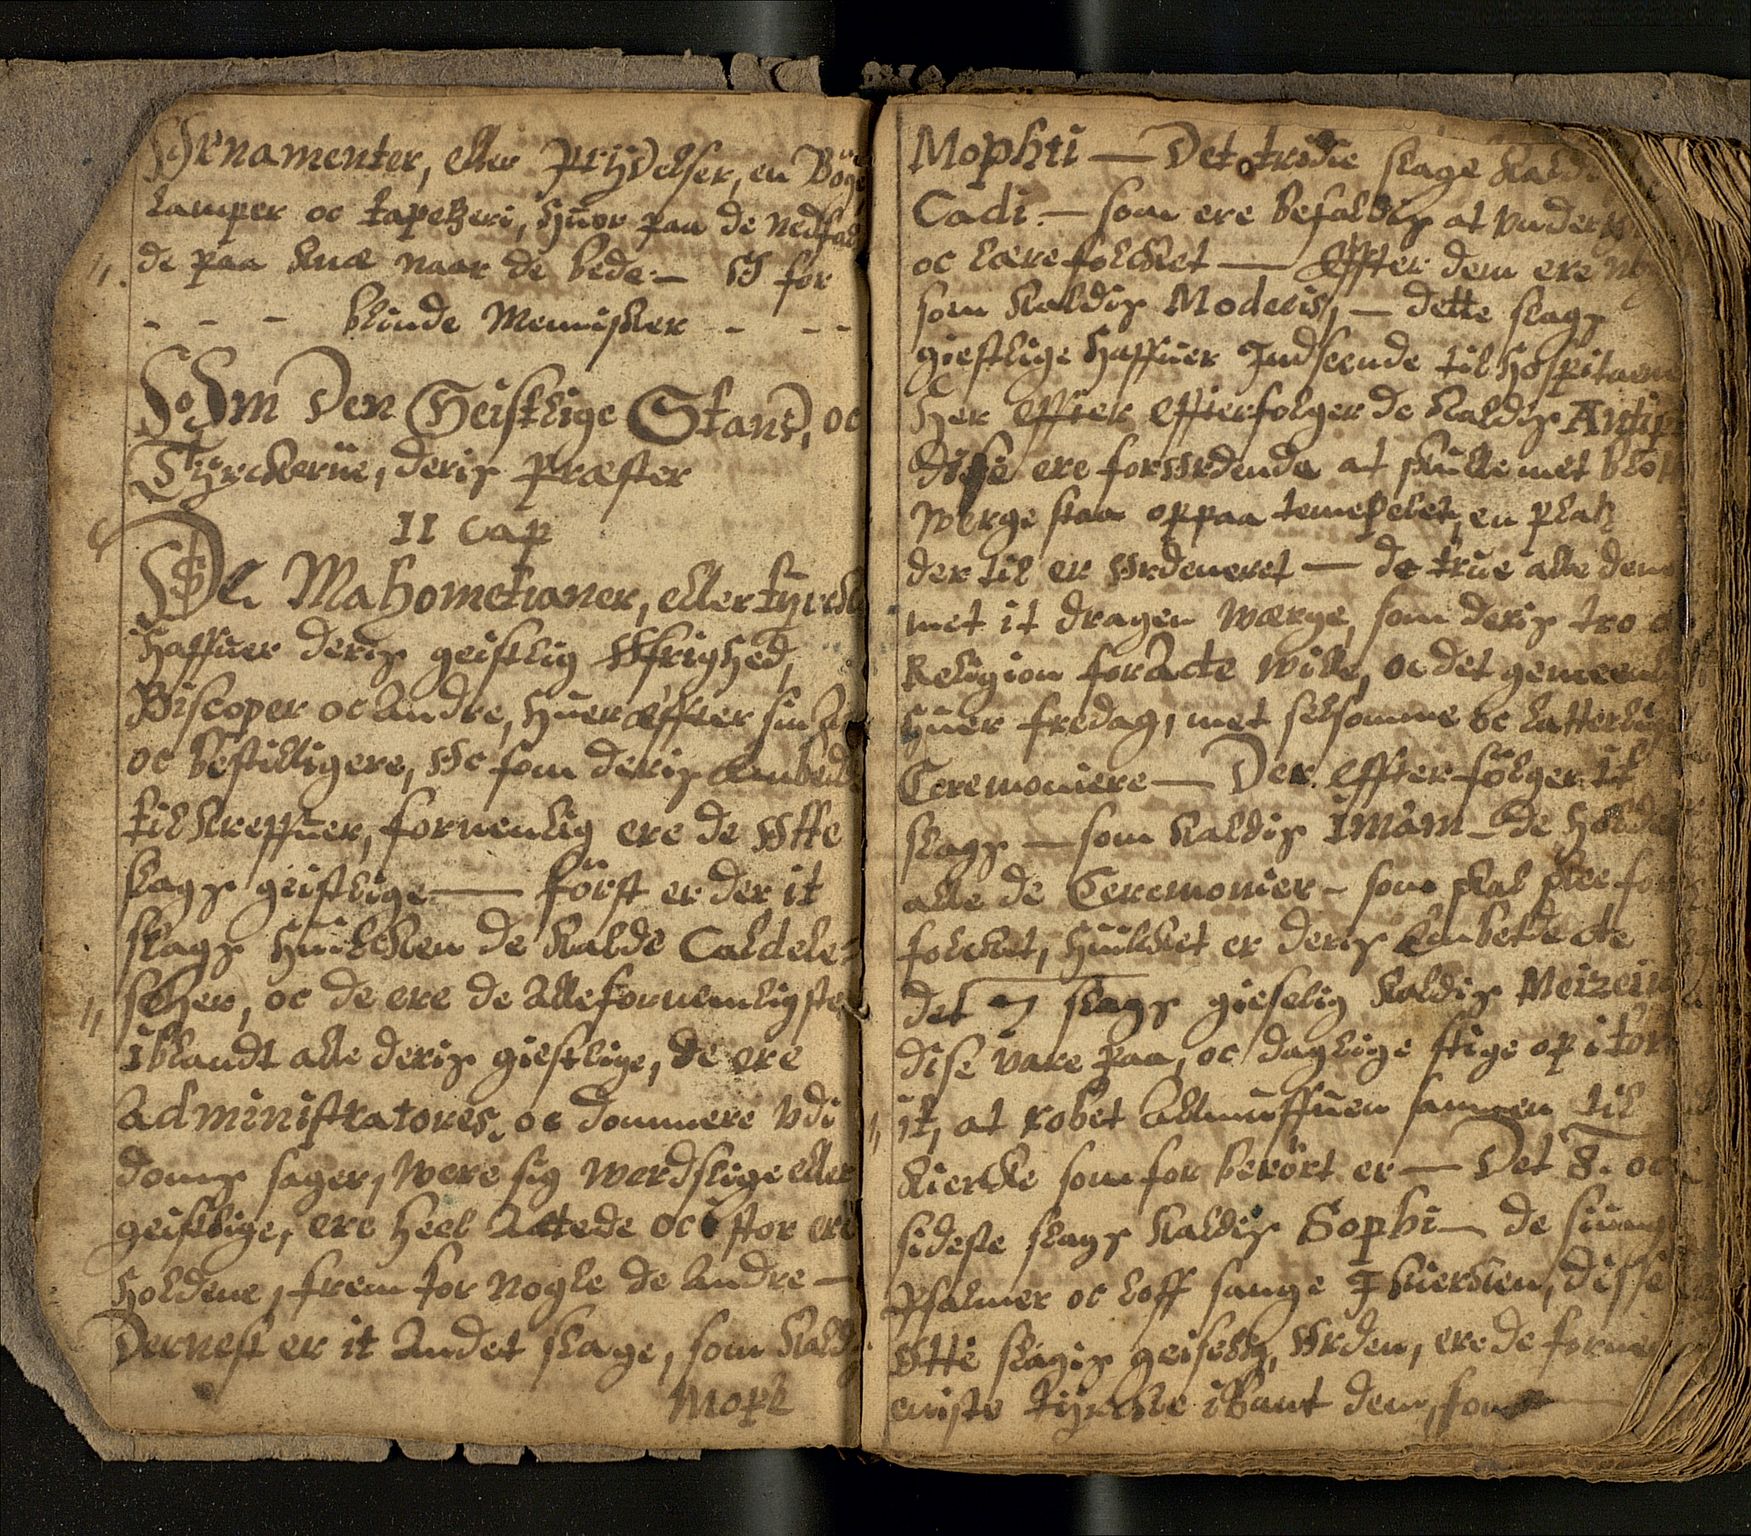 Ornamenter, eller Prÿdelser, en Boge
lamper oc tapetzeri, huor paa de nedfal
de paa knæ naar de bede – O for
- - - blinde Mennisker - - -
Om Den Geistlige Stand, oc
Tyrckerne, deris præster
II Cap
De Mahometaner, eller tyrcke
haffuer deris geistlig Øfrighed,
Biscoper oc Andre, huer effter sin
oc bestilligere, Oc som deris Embede
til kreffuer, fornemlig ere de Otte
slags geistlige — först er der it
slags huilcken de kalde Caldele=
scher, oc de ere de Allefornemligste
iblandt alle deris giestlige, de ere
Administratores, oc dommere vdi
doms sager, were sig werdslige eller
geistlige, ere heel Actede oc i stor ere
holdene, frem for nogle de Andre —
Dernest er it Andet slags, som kaldis
Moph
Mophti — Det tredie slags kaldis
Cadi — som ere befaldis at vnder
oc lære folcket — Effter dem ere
som kaldis Moderis, — dette slags
giestlige haffuer Indseende til hospitaen
her effter effterfolger de kaldis Antip
disse ere forordende at skulle met blot
werge staa oppaa tempelet, en platz
der til er Ordeneret — de true alle dem
met it dragen wærge, som deris tro o
Religion foracte wille, oc det gemeenl
huer fredag, met selsomme oc latterlig
Ceremoniere — Der effter fölger it
slags — som kaldis Imam — de holde
alle de Ceremonier – som skal skee for
folcket, huilcket er deris Embede
det 7 slags gieselig kaldis Meizein
dise vare paa, oc daglige stige op i tor
it, at robet Allmuffuen sammen til
kiercke som for berört er — Det 8. oc
sideste slags kaldis Sophi — de siung
Psalmer oc loff sange I kiercken, disse
Otte slagis geiselig, Orden, ere de fornem
eniste tyrcke iblant dem, som